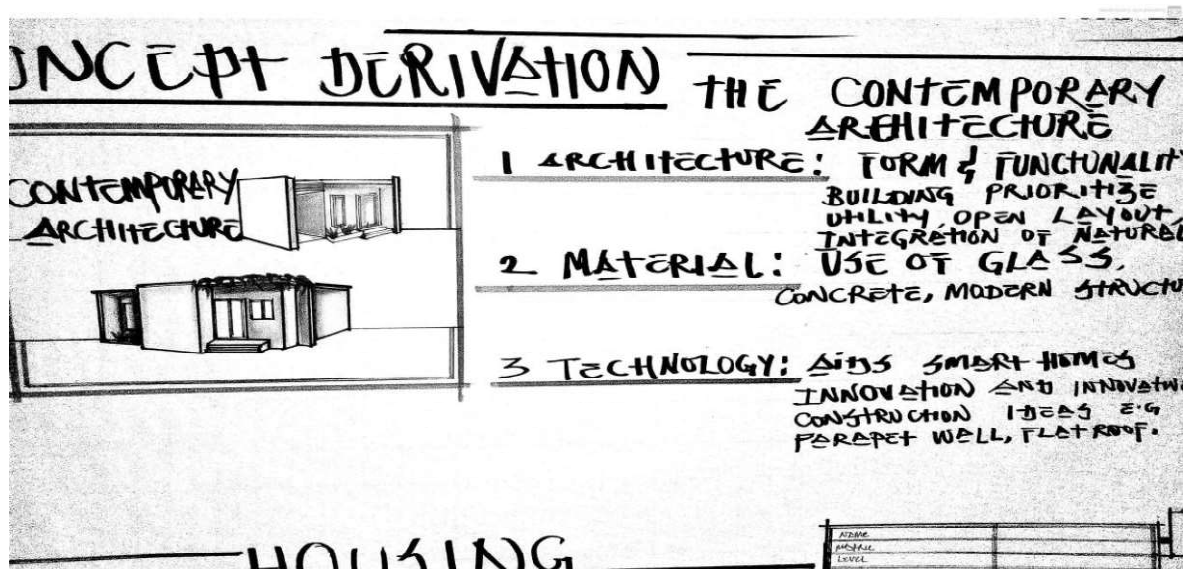 ONCEPT DERIVATION
THE CONTEMPORARY
ARCHITECTURE
CONTEMPORARY
ARCHITECTURE
1 ARCHITECTURE: FORM & FUNCTUNALITY
BUILDING PRIORITIZE
UTILITY, OPEN LAYOUT,
INTEGRATION OF NATURAL
2 MATERIAL: USE OF GLASS,
CONCRETE, MODERN STRUCTU
3 TECHNOLOGY: AIDS SMART HOMES
INNOVATION AND INNOVATIV
CONSTRUCTION IDEAS E.G
PARAPET WALL, FLAT ROOF.
HOUSING
NAME
LEVEL